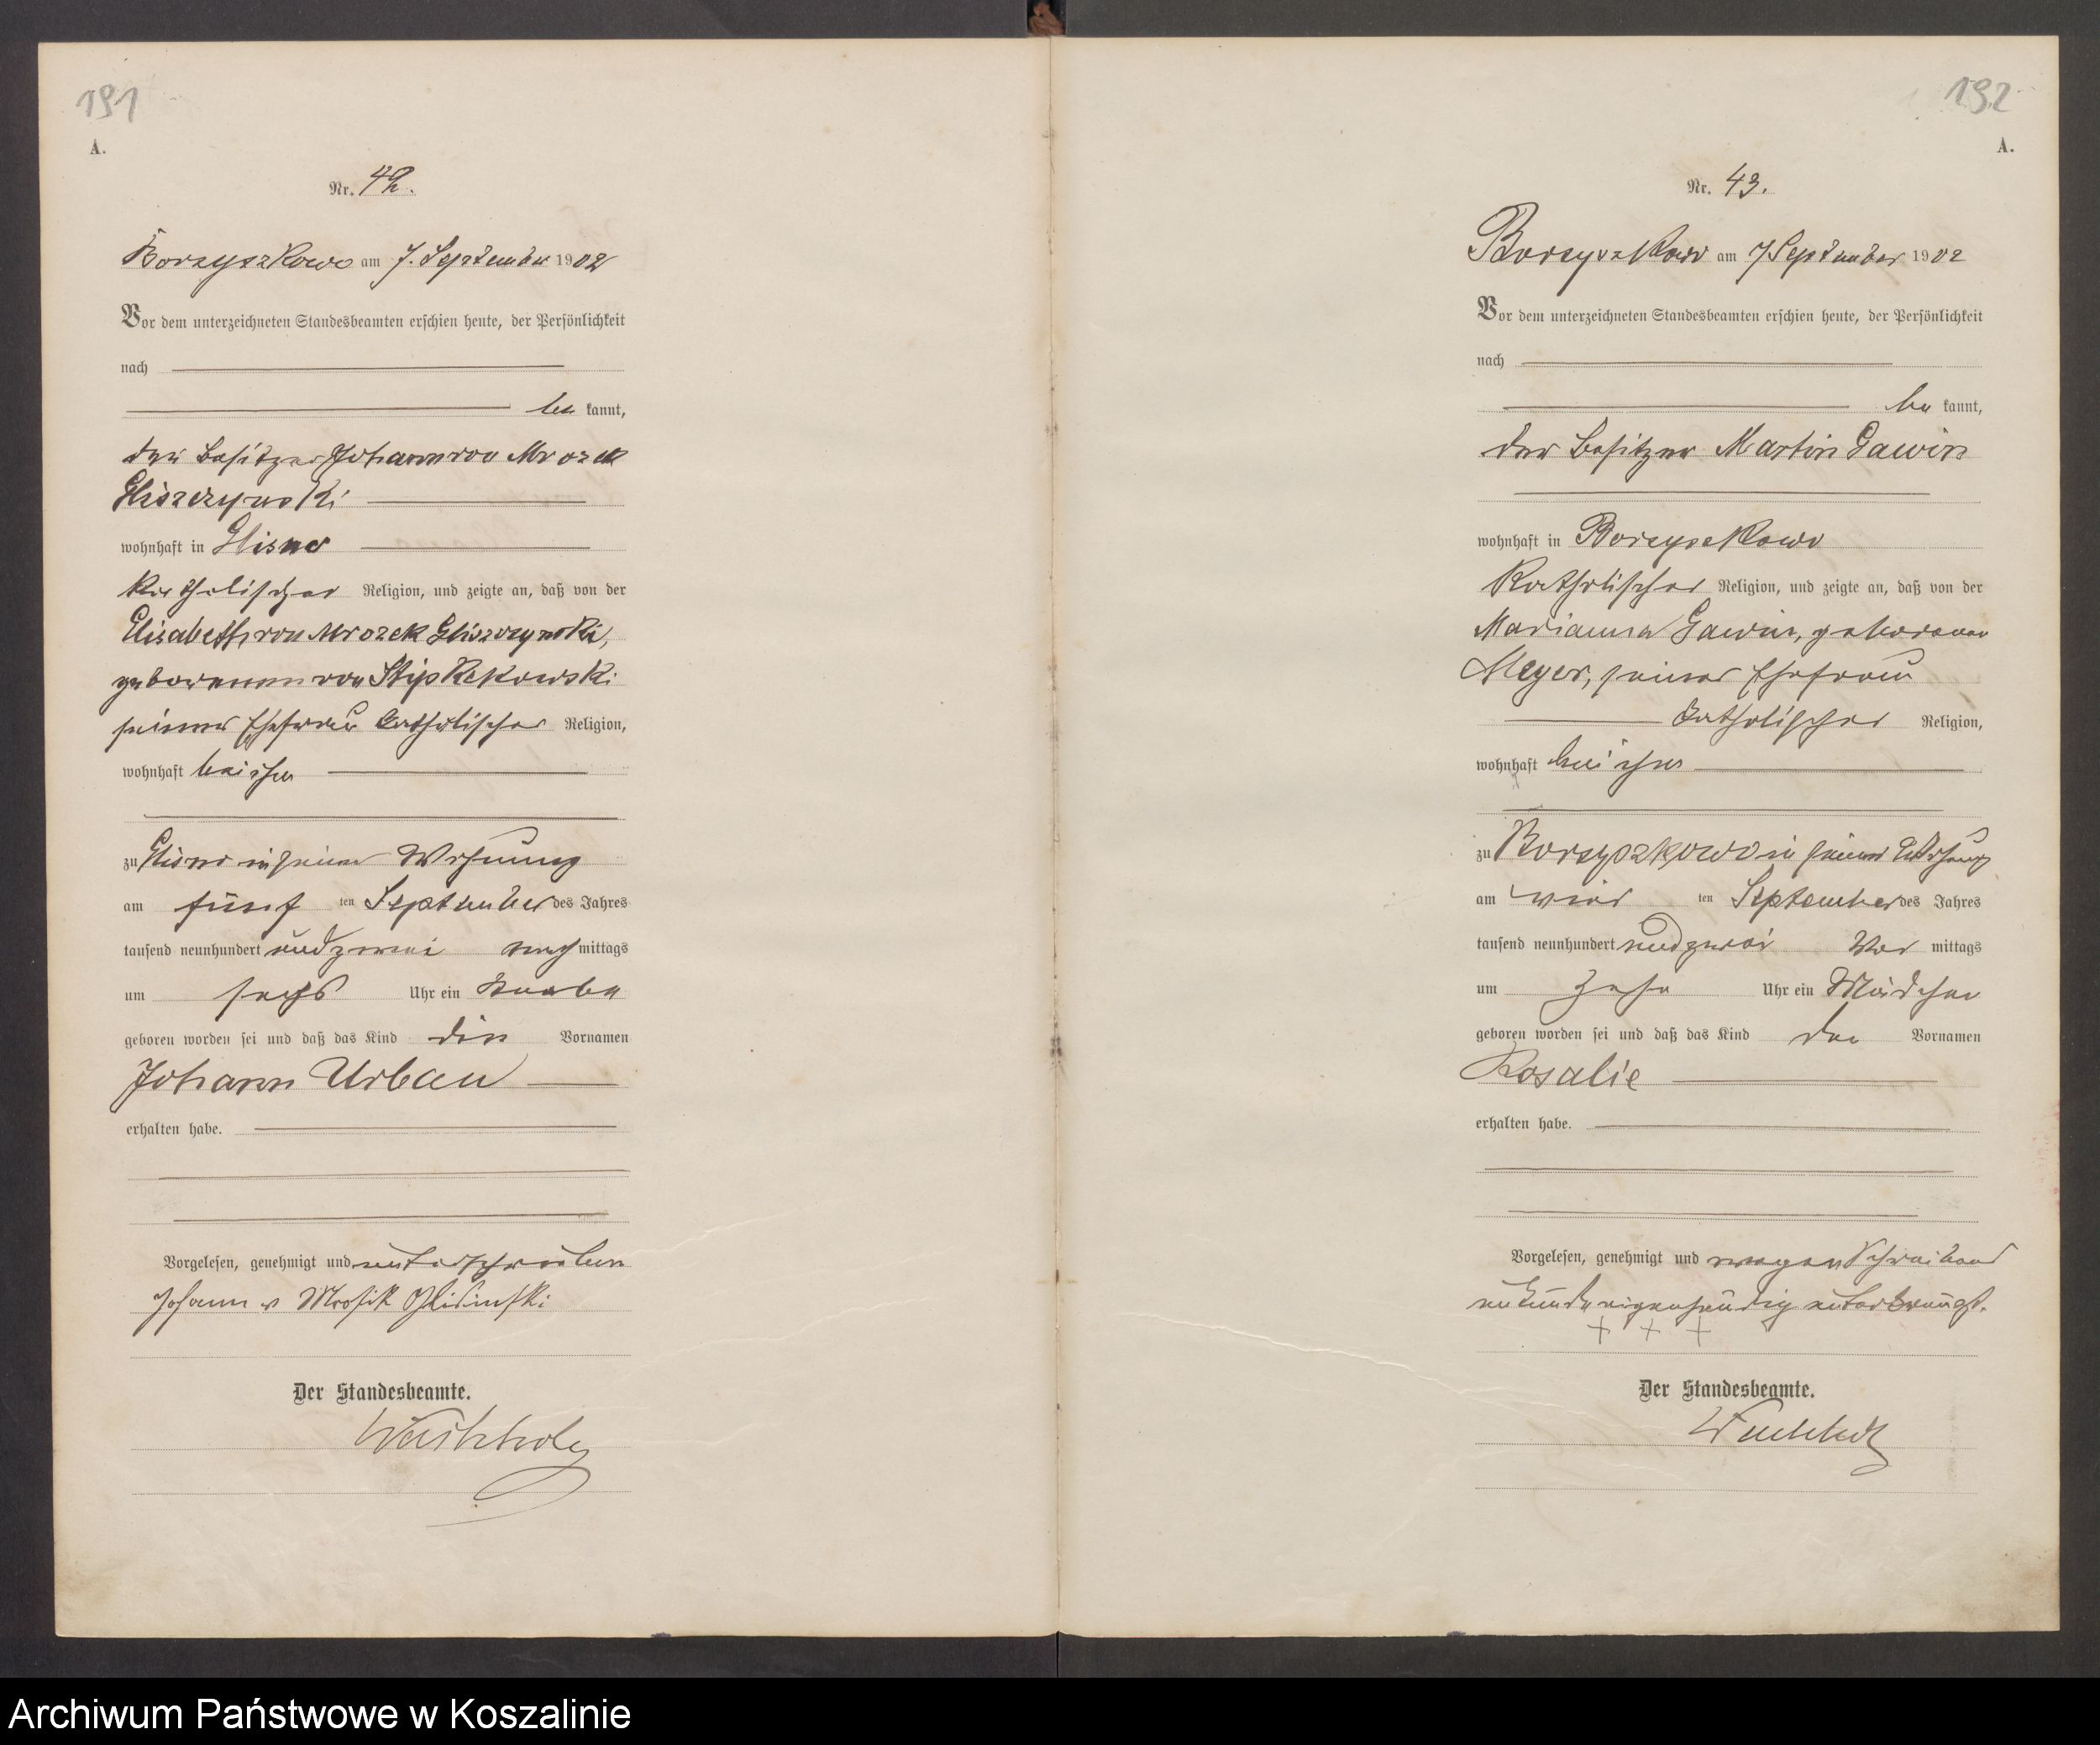 191
A.
Nr. 42.
Borzyszkowo am 7. September 1902
Vor dem unterzeichneten Standesbeamten erschien heute, der Persönlichkeit
nach
be kannt,
der Besitzer Johann von Mrozek
Gliszczynski
wohnhaft in Glisno
katholischer Religion, und zeigte an, daß von der
Elisabeth von Mrozek Gliszczynski,
geborenen von Stip Rekowski
seiner Ehefrau katholischer Religion,
wohnhaft bei ihm
zu Glisno in seiner Wohnung
am fünf ten September des Jahres
tausend neunhundert und zwei nach mittags
um sechs Uhr ein Knabe
geboren worden sei und daß das Kind die Vornamen
Johann Urban
erhalten habe.
Vorgelesen, genehmigt und unterschrieben
Johann v Mrosik Glisinski
Der Standesbeamte.
192
A.
Nr. 43.
Borzyszkowo am 7 September 1902
Vor dem unterzeichneten Standesbeamten erschien heute, der Persönlichkeit
nach
be kannt,
der Besitzer Martin Gawin
wohnhaft in Borzyszkowo
katholischer Religion, und zeigte an, daß von der
Marianna Gawin, geborenen
Meyer, seiner Ehefrau
katholischer Religion,
wohnhaft bei ihm
zu Borzyszkowo in seiner Wohnung
am vier ten September des Jahres
tausend neunhundert und zwei Vor mittags
um zehn Uhr ein Mädchen
geboren worden sei und daß das Kind den Vornamen
Rosalie
erhalten habe.
Vorgelesen, genehmigt und wegen Schreibens
unkunde eigenhändig unterkreuzt.
+ + +
Der Standesbeamte.
Archiwum Państwowe w Koszalinie